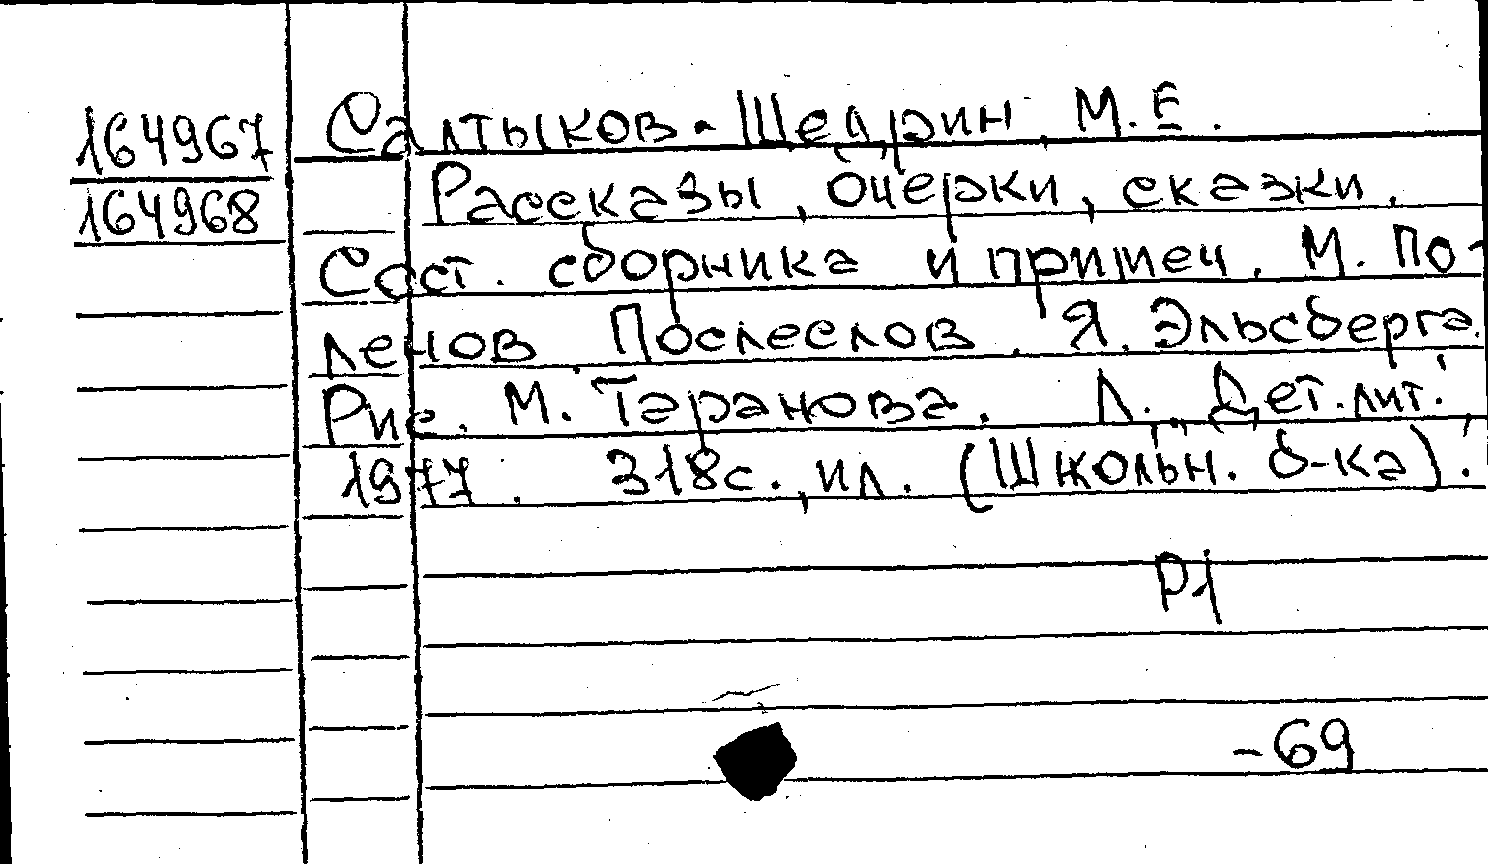 164967 Салтыков-Щедрин, М.Е.
164968 Рассказы, очерки, сказки.
Сост. сборника и примеч. М. По-
ленов Послеслов. Я. Эльсберга.
Рис. М. Таранова. Л., "Дет.лит.",
1977. 318с., ил. (Школьн. б-ка).
Р1
-69